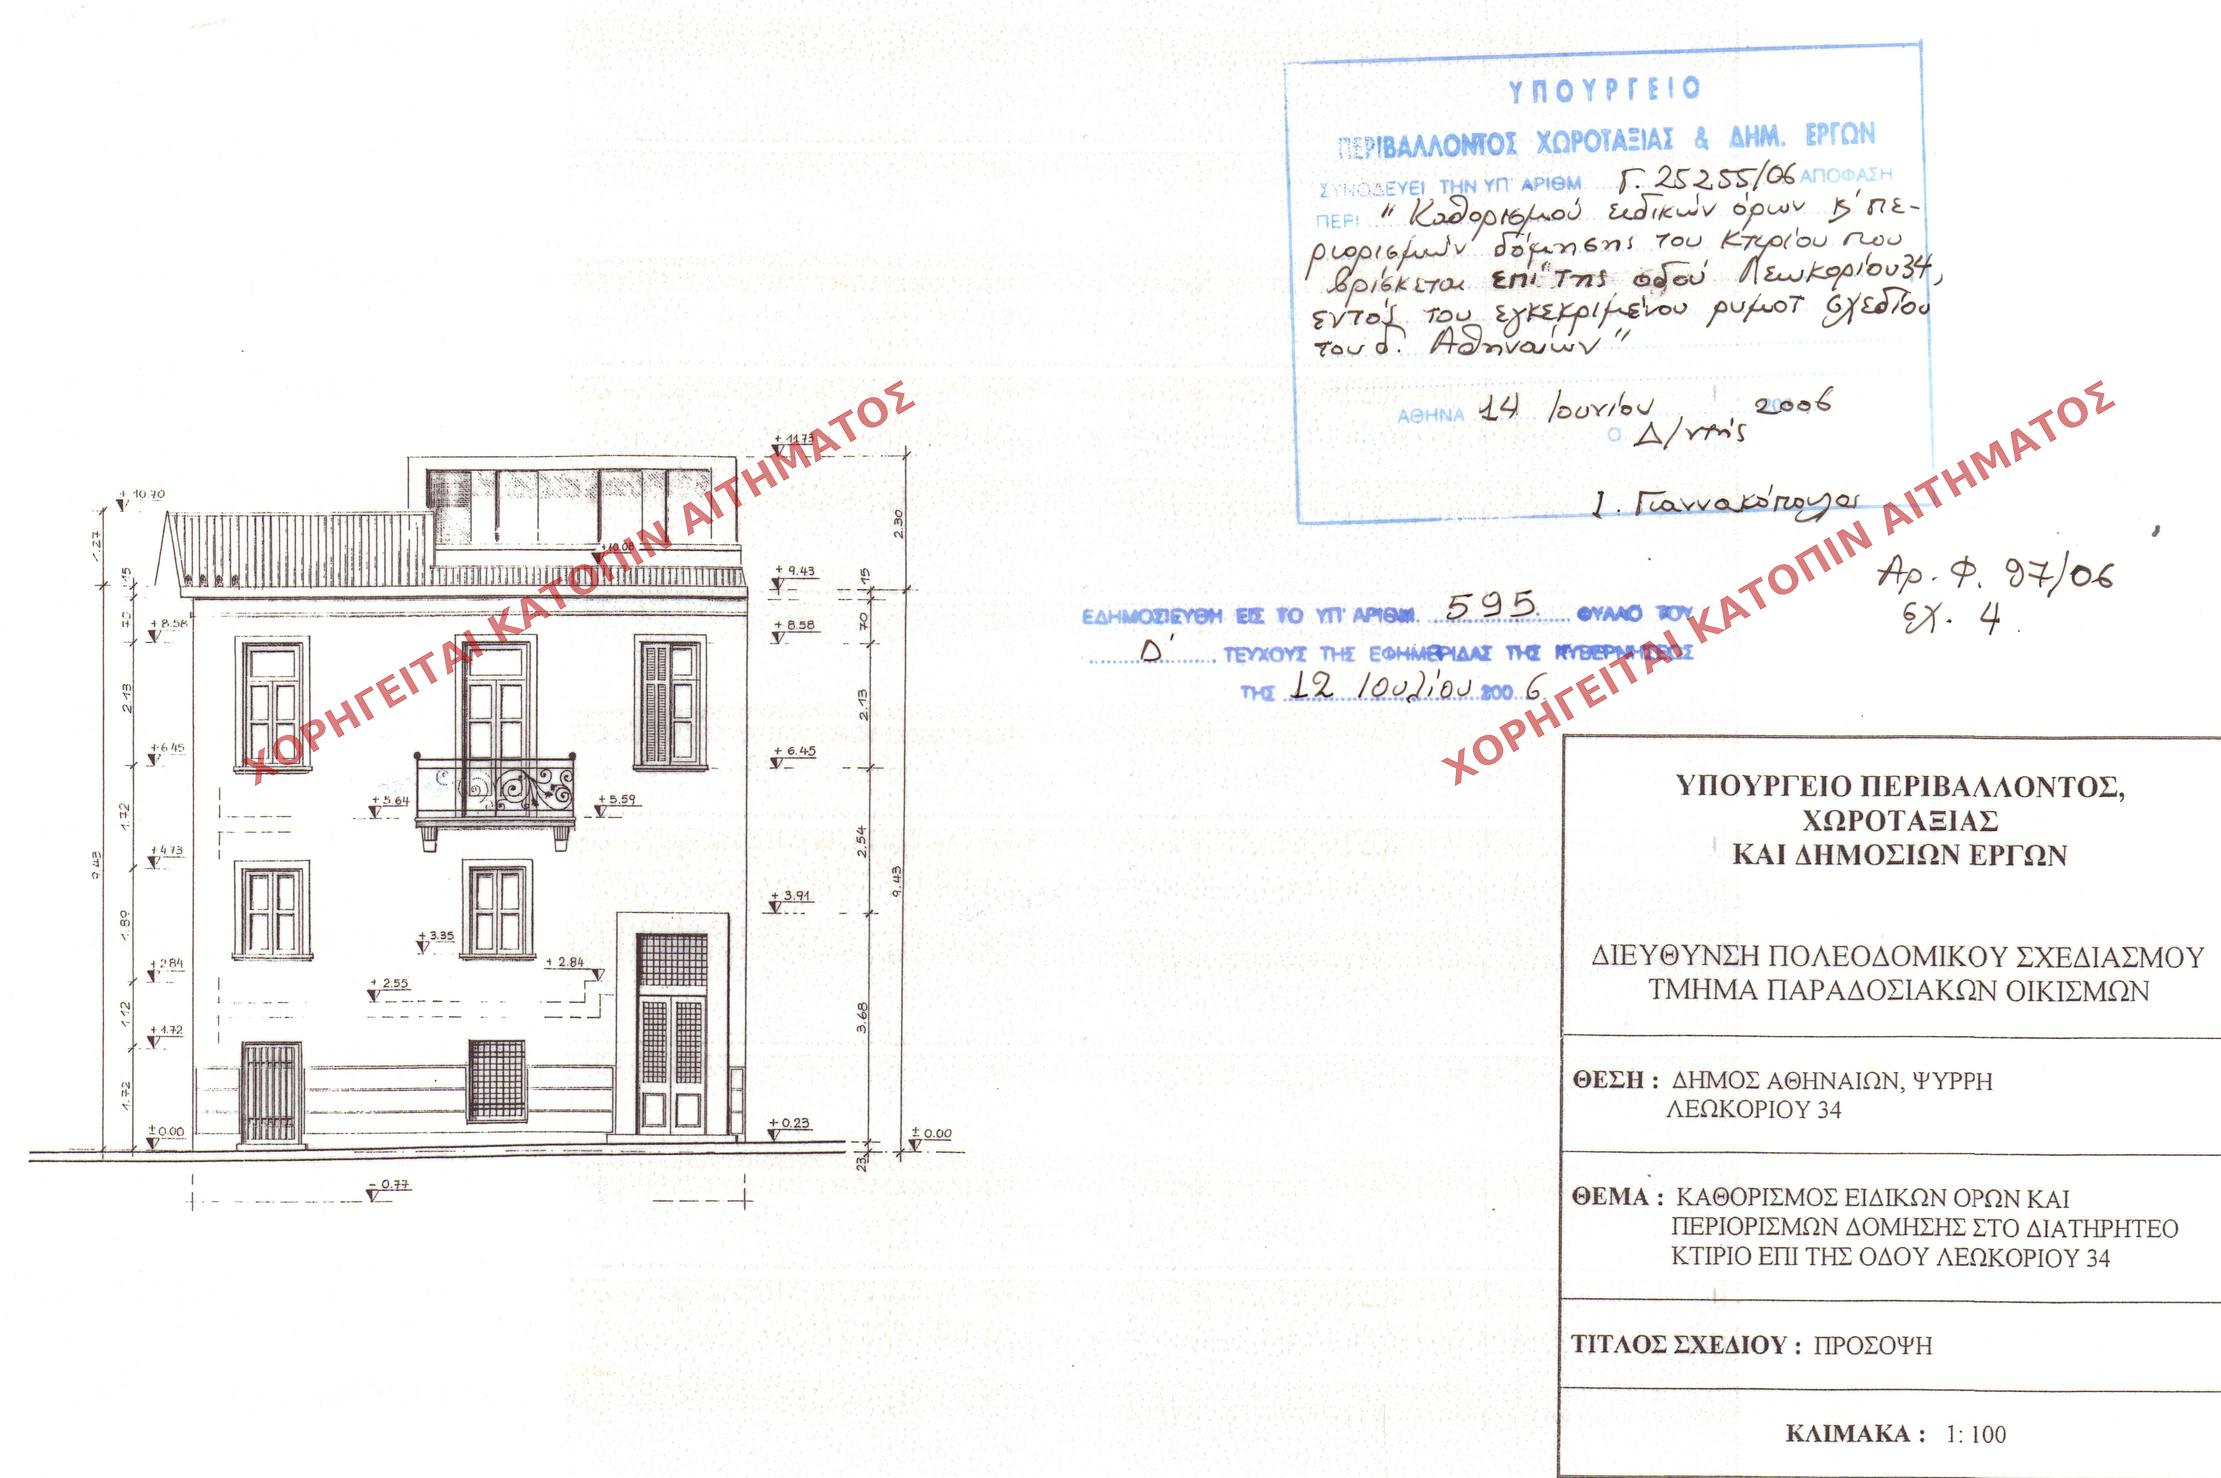 ΥΠΟΥΡΓΕΙΟ
ΠΕΡΙΒΑΛΛΟΝΤΟΣ ΧΩΡΟΤΑΞΙΑΣ & ΔΗΜ. ΕΡΓΩΝ
ΣΥΝΟΔΕΥΕΙ ΤΗΝ ΥΠ ΑΡΙΘΜ Γ. 25255/06 ΑΠΟΦΑΣΗ
ΠΕΡΙ "Καθορισμού ειδικών όρων κ' πε-
ριορισμών δόμησης του κτιρίου που
βρίσκεται επί της οδού Λεωκορίου 34,
εντός του εγκεκριμένου ρυμοτ σχεδίου
του δ. Αθηναίων"
ΑΘΗΝΑ 14 Ιουνίου 2006
Ο Δ/ντής
Ι. Γιαννακόπουλος
Αρ. Φ. 97/06
εχ. 4
ΕΔΗΜΟΣΙΕΥΘΗ ΕΙΣ ΤΟ ΥΠ ΑΡΙΘΜ. 595 ΦΥΛΛΟ ΤΟΥ
Δ' ΤΕΥΧΟΥΣ ΤΗΣ ΕΦΗΜΕΡΙΔΑΣ ΤΗΣ ΚΥΒΕΡΝΗΣΕΩΣ
ΤΗΣ 12 Ιουλίου 2006
ΧΟΡΗΓΕΙΤΑΙ ΚΑΤΟΠΙΝ ΑΙΤΗΜΑΤΟΣ
ΧΟΡΗΓΕΙΤΑΙ ΚΑΤΟΠΙΝ ΑΙΤΗΜΑΤΟΣ
+ 11.73
+ 10.70
1.27
2.30
+10.08
+ 9.43
15
15
70
70
+ 8.58
+ 8.58
2.13
2.13
+ 6.45
+ 6.45
+ 5.64
+ 5.59
1.72
2.54
+ 4.73
9.43
9.43
+ 3.91
1.89
+ 3.35
+ 2.84
+ 2.84
+ 2.55
1.12
3.68
+ 1.72
1.72
± 0.00
+ 0.23
± 0.00
23
- 0.77
ΥΠΟΥΡΓΕΙΟ ΠΕΡΙΒΑΛΛΟΝΤΟΣ,
ΧΩΡΟΤΑΞΙΑΣ
ΚΑΙ ΔΗΜΟΣΙΩΝ ΕΡΓΩΝ
ΔΙΕΥΘΥΝΣΗ ΠΟΛΕΟΔΟΜΙΚΟΥ ΣΧΕΔΙΑΣΜΟΥ
ΤΜΗΜΑ ΠΑΡΑΔΟΣΙΑΚΩΝ ΟΙΚΙΣΜΩΝ
ΘΕΣΗ : ΔΗΜΟΣ ΑΘΗΝΑΙΩΝ, ΨΥΡΡΗ
ΛΕΩΚΟΡΙΟΥ 34
ΘΕΜΑ : ΚΑΘΟΡΙΣΜΟΣ ΕΙΔΙΚΩΝ ΟΡΩΝ ΚΑΙ
ΠΕΡΙΟΡΙΣΜΩΝ ΔΟΜΗΣΗΣ ΣΤΟ ΔΙΑΤΗΡΗΤΕΟ
ΚΤΙΡΙΟ ΕΠΙ ΤΗΣ ΟΔΟΥ ΛΕΩΚΟΡΙΟΥ 34
ΤΙΤΛΟΣ ΣΧΕΔΙΟΥ : ΠΡΟΣΟΨΗ
ΚΛΙΜΑΚΑ : 1: 100